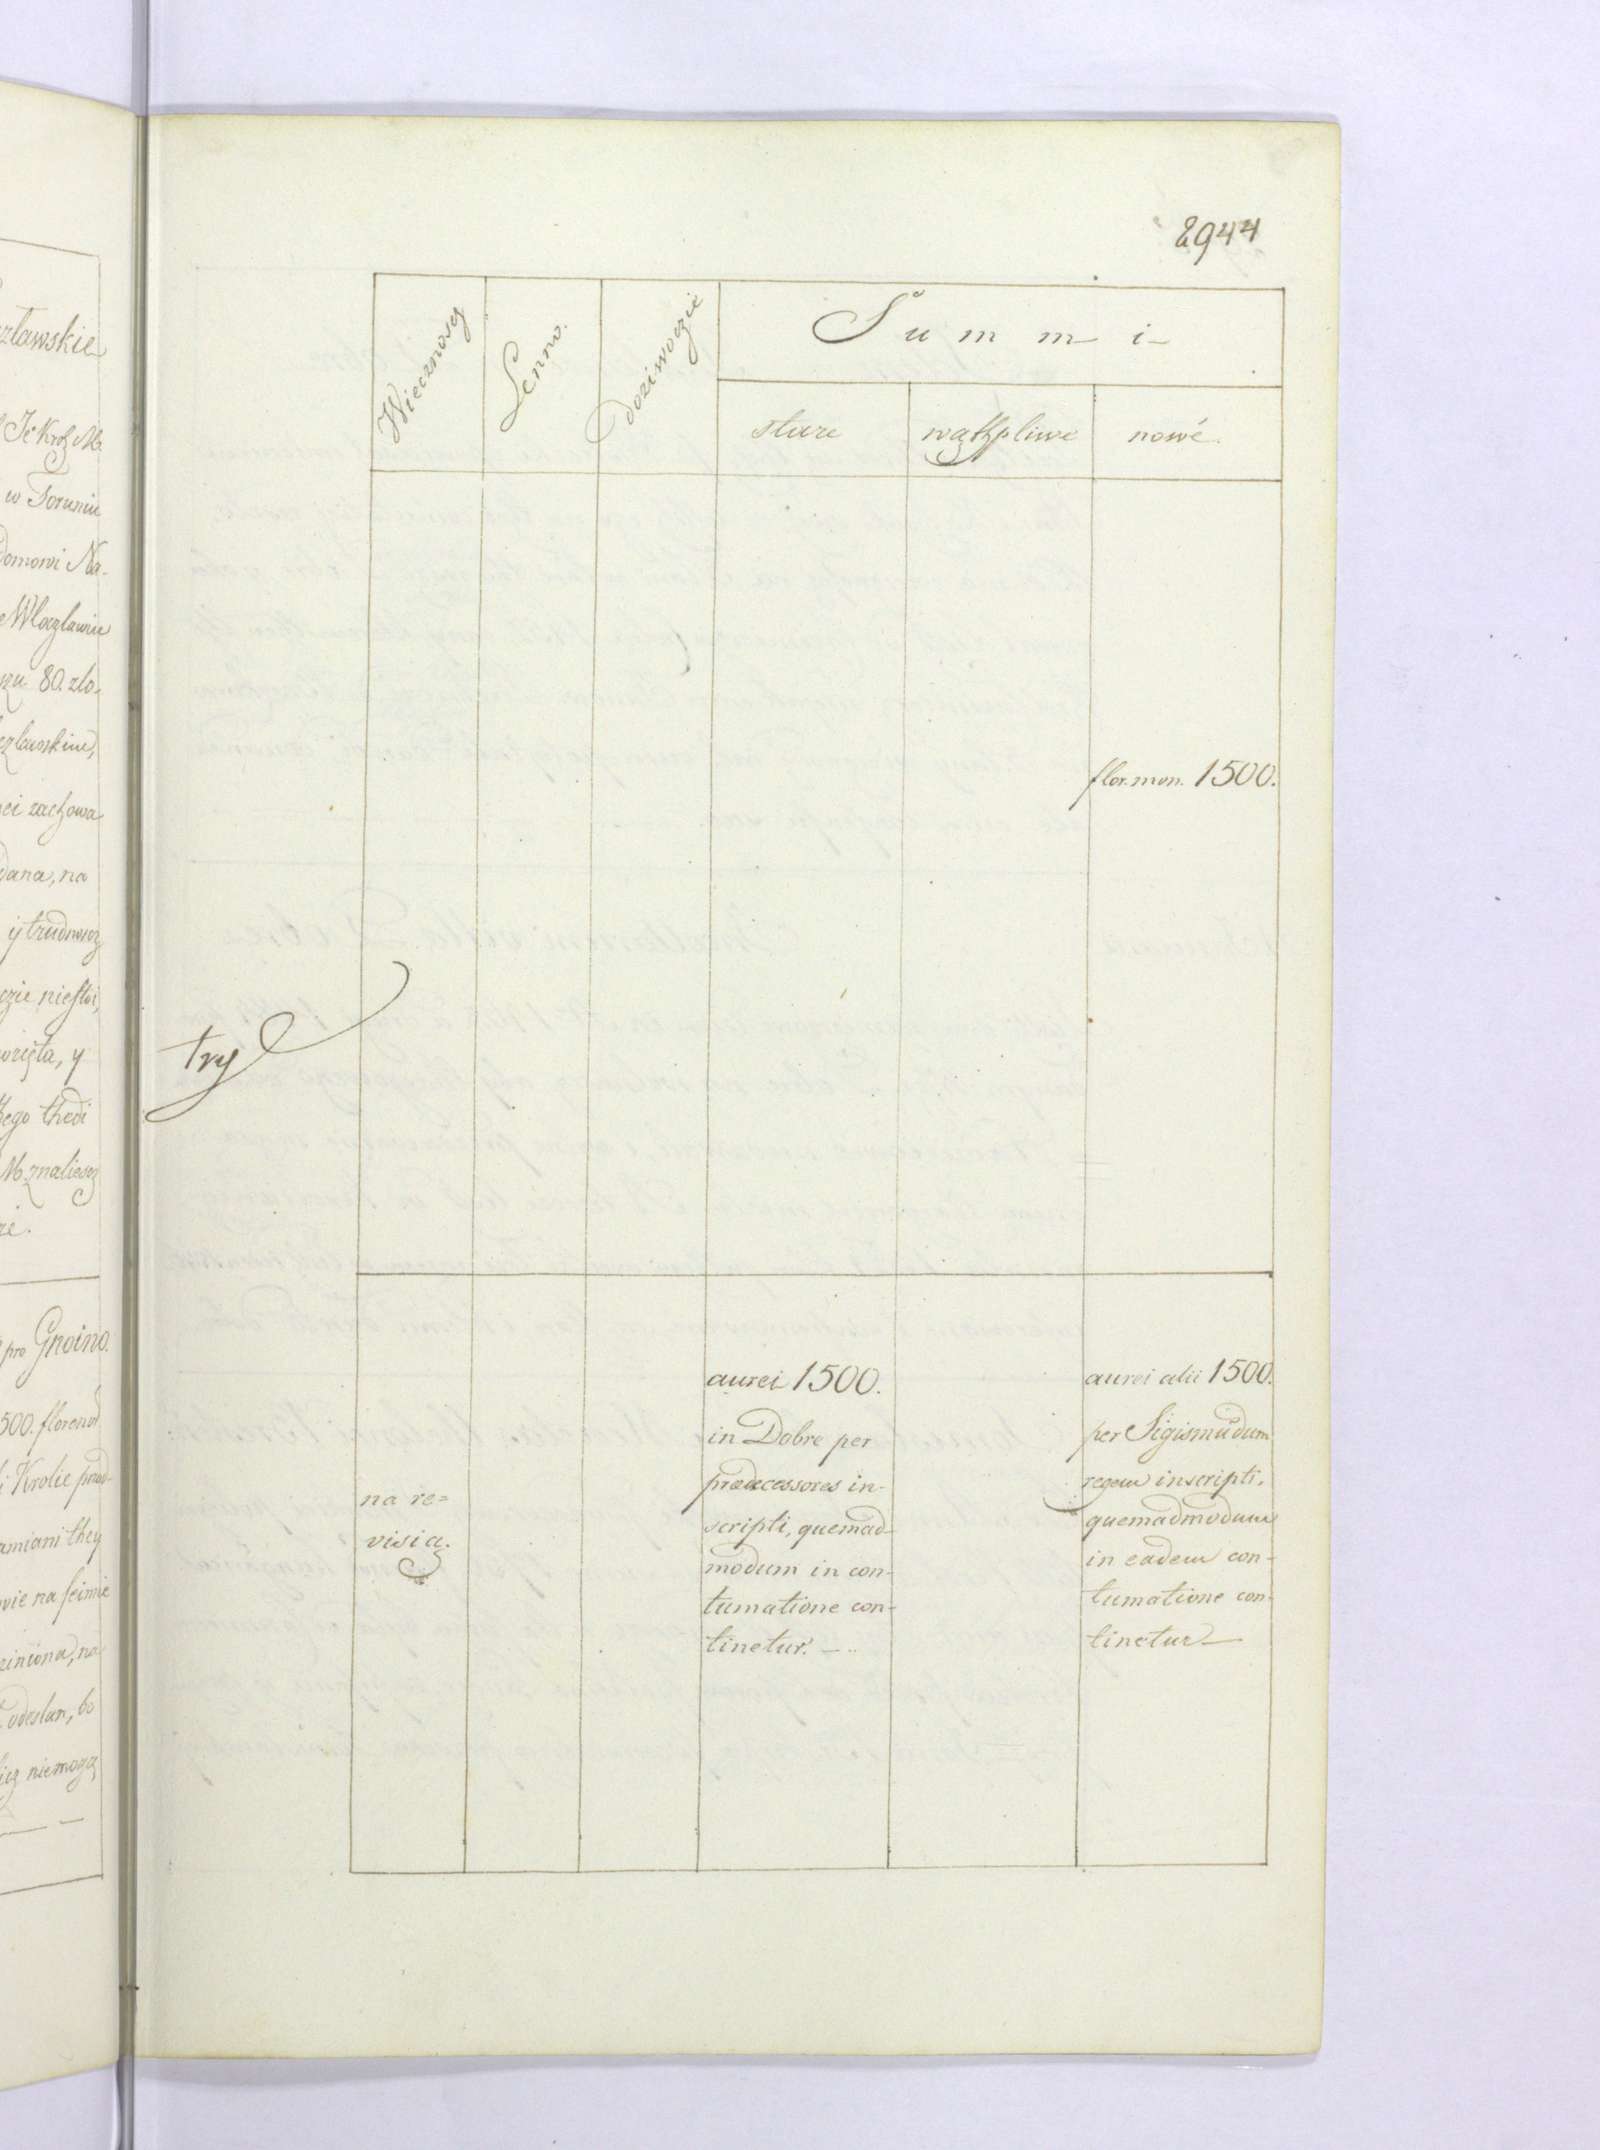 zlawskie
Je Krol M.
w Toruniu
domowi Na-
Wloczlawiu
80. zlo-
czlawskim,
ci zachowa
dana, na
y trudnoscz
czie niestoi,
wzięta, y
tego thedi
M. znaliescz
pro Gnoino.
500. florenow
Krolie
amiani they
na seimie
odeslan, bo
niemogą
2944
Wiecznoscz
Lenno.
Doziwoczie
Summi
stare
wąthpliwe
nowé.
flor. mon. 1500.
try
na re=
visią.
aurei 1500.
in Dobre per
praedecessores in-
scripti, quemad-
modum in con-
tumatione con-
tinetur. —
aurei alii 1500.
per Sigismundum
regem inscripti,
quemadmodum
in eadem con-
tumatione con-
tinetur —